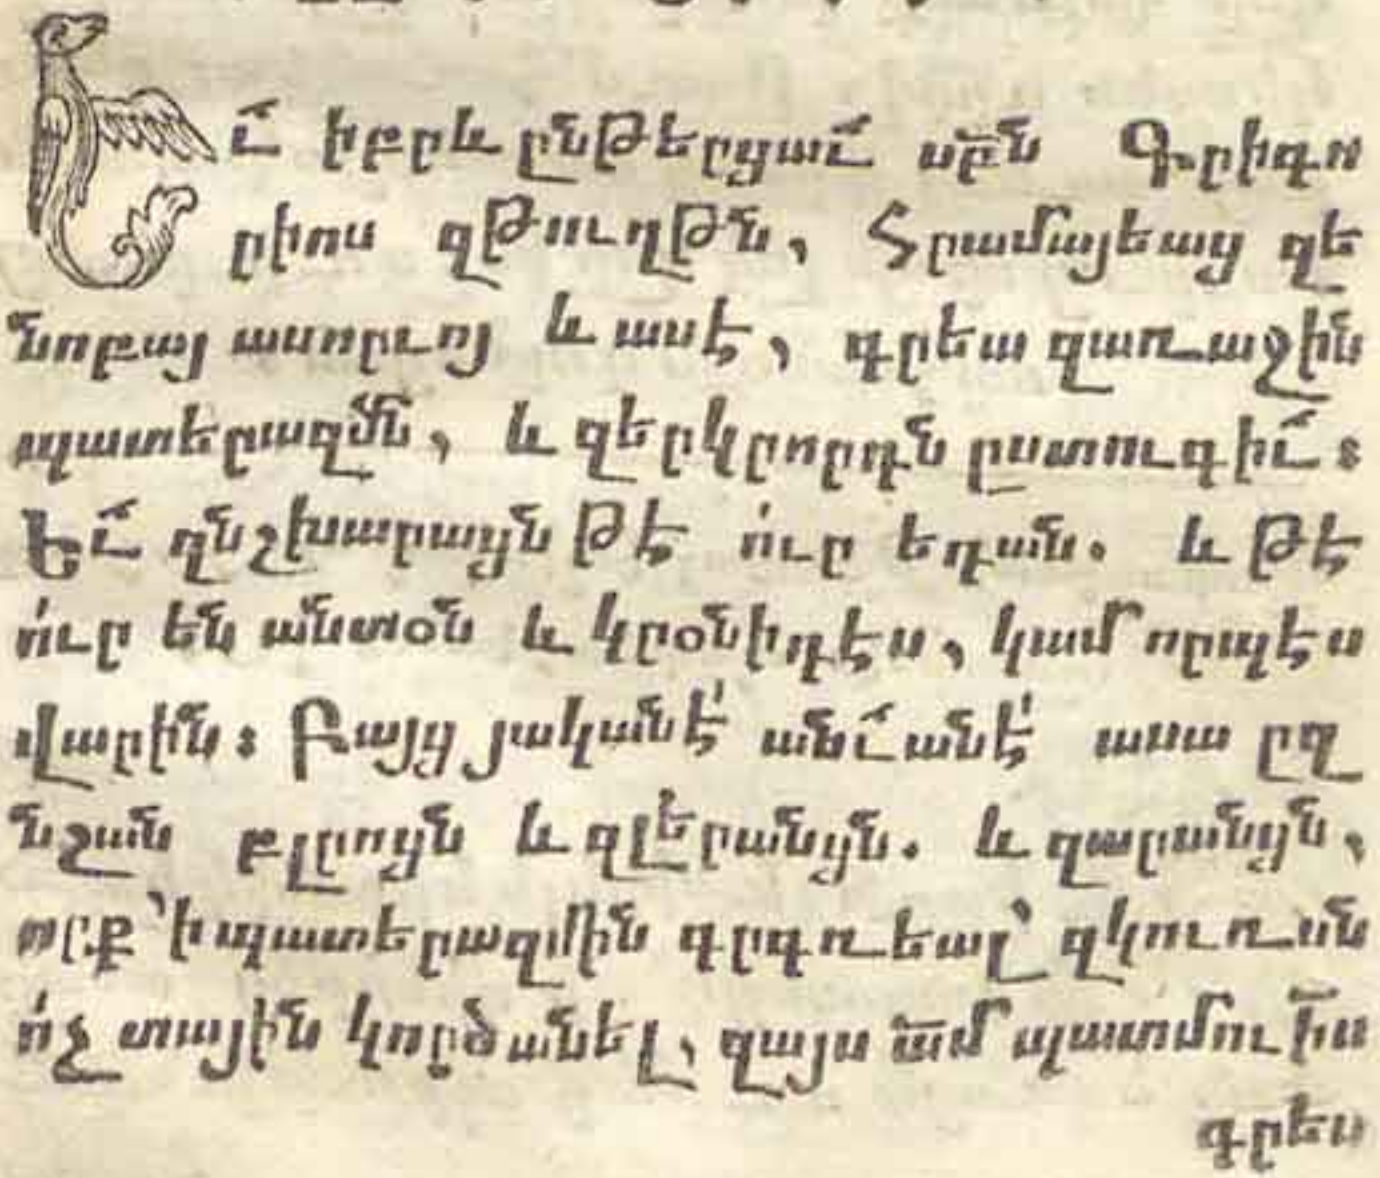 Եւ̃ իբրև ընթերցաւ̃ սբ̃ն Գրիգո
րիոս զթուղթն, Հրամայեաց զե
նոբայ ասորւոյ և ասէ, գրեա զառաջին
պատերազմ̃ն, և զերկրորդն ըստուգիւ̃։
Եւ̃ զնշխարացն թէ ո՛ւր եդան. և թէ
ո՛ւր են անտօն և կրօնիդէս, կամ որպէս
վարին։ Բայց յականէ՛ անւ̃անէ՛ ասա ըզ
նշան բլրոցն և զլերանցն. և զարանցն,
որք ՝ի պատերազմին գրգռեալ՝ զկուռսն
ո՛չ տային կործանել, զայս ա̃մ պատմուի̃ս
գրես